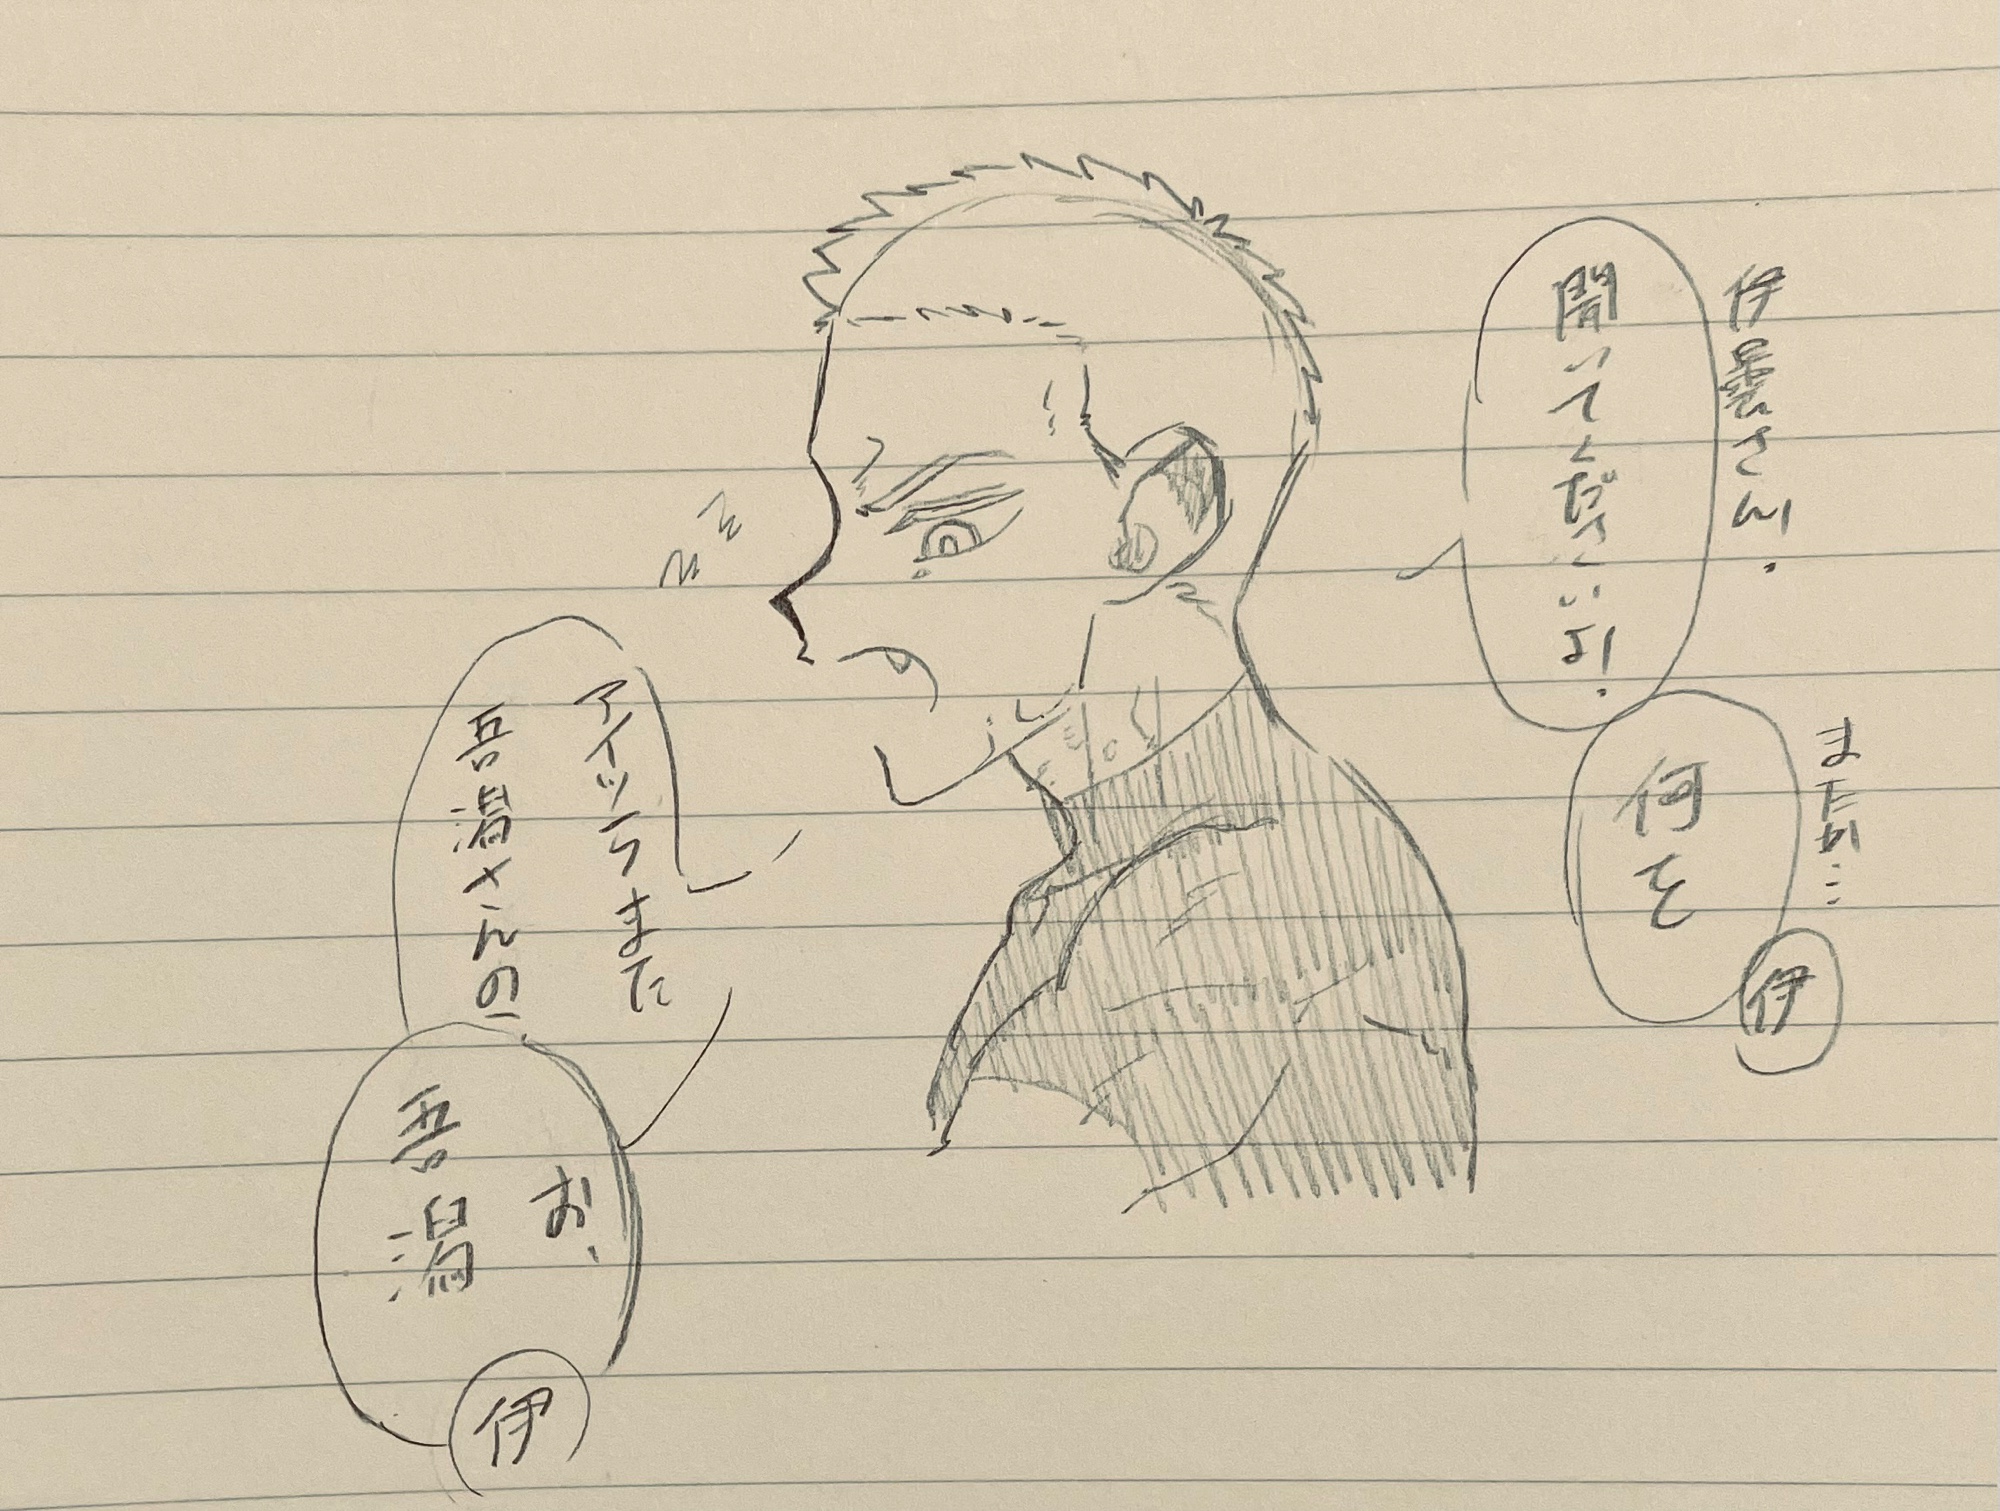 伊曇さん!
聞いてくださいよ!
またか…
何を
伊
アイツラまた
吾潟さんの
お、
吾潟
伊